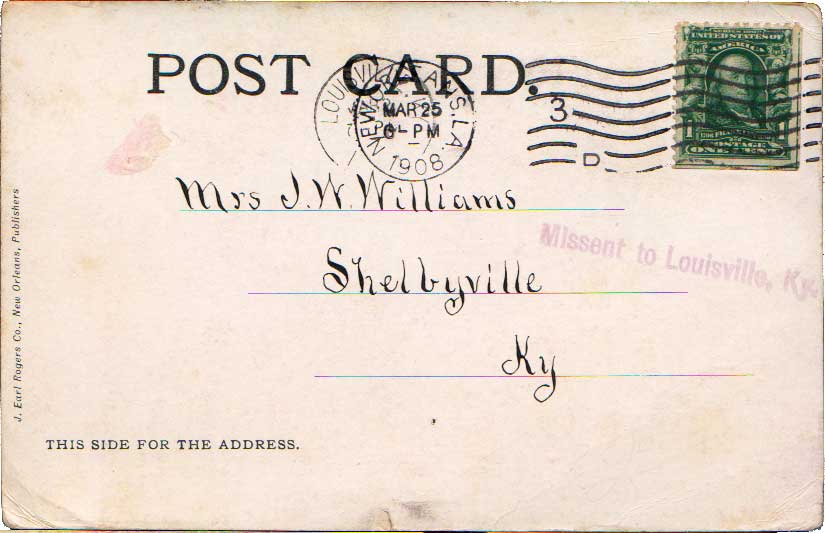 POST CARD.
LOUISVILLE
NEW ORLEANS, LA.
MAR 25
6- PM
1908
3
D
SERIES 1902
UNITED STATES OF
AMERICA
1 1
POSTAGE
ONE CENT
Mrs J. W. Williams
Missent to Louisville, Ky.
Shelbyville
Ky
J. Earl Rogers Co., New Orleans, Publishers
THIS SIDE FOR THE ADDRESS.